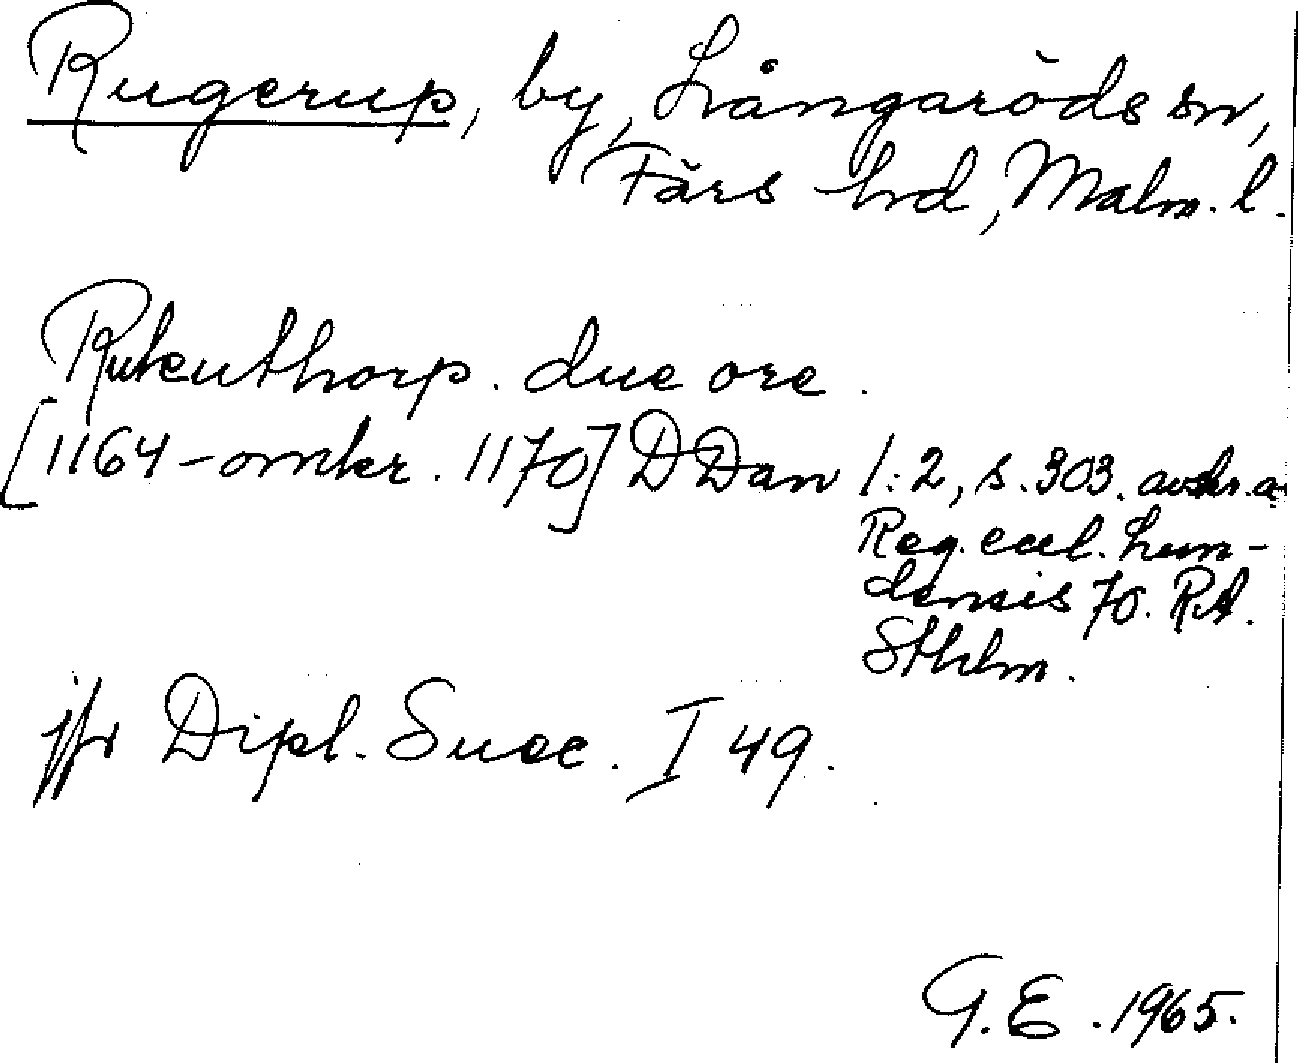 Rugerup, by, Långaröds sn,
Färs hd, Malm. l.
Rukuthorp. due ore.
[1164 – omkr. 1170] DDan 1:2, s. 303. avskr. a.
Reg. eccl. Lun-
densis 70. RA.
Sthlm.
jfr Dipl. Suec. I 49.
G.E. 1965.